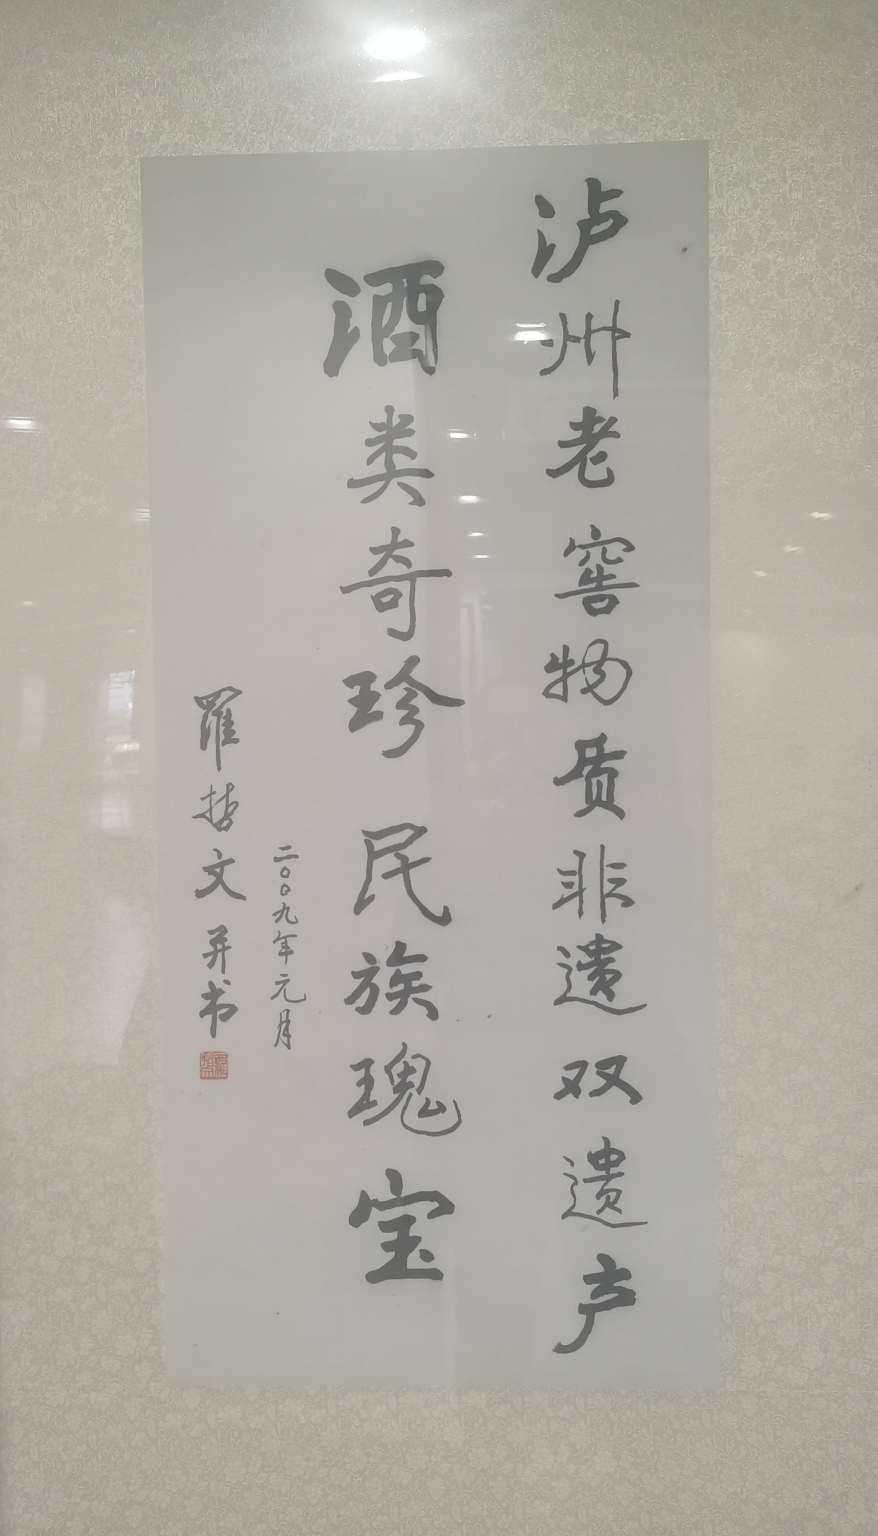 泸州老窖物质非遗双遗产
酒类奇珍民族瑰宝
二〇〇九年元月
羅哲文并书